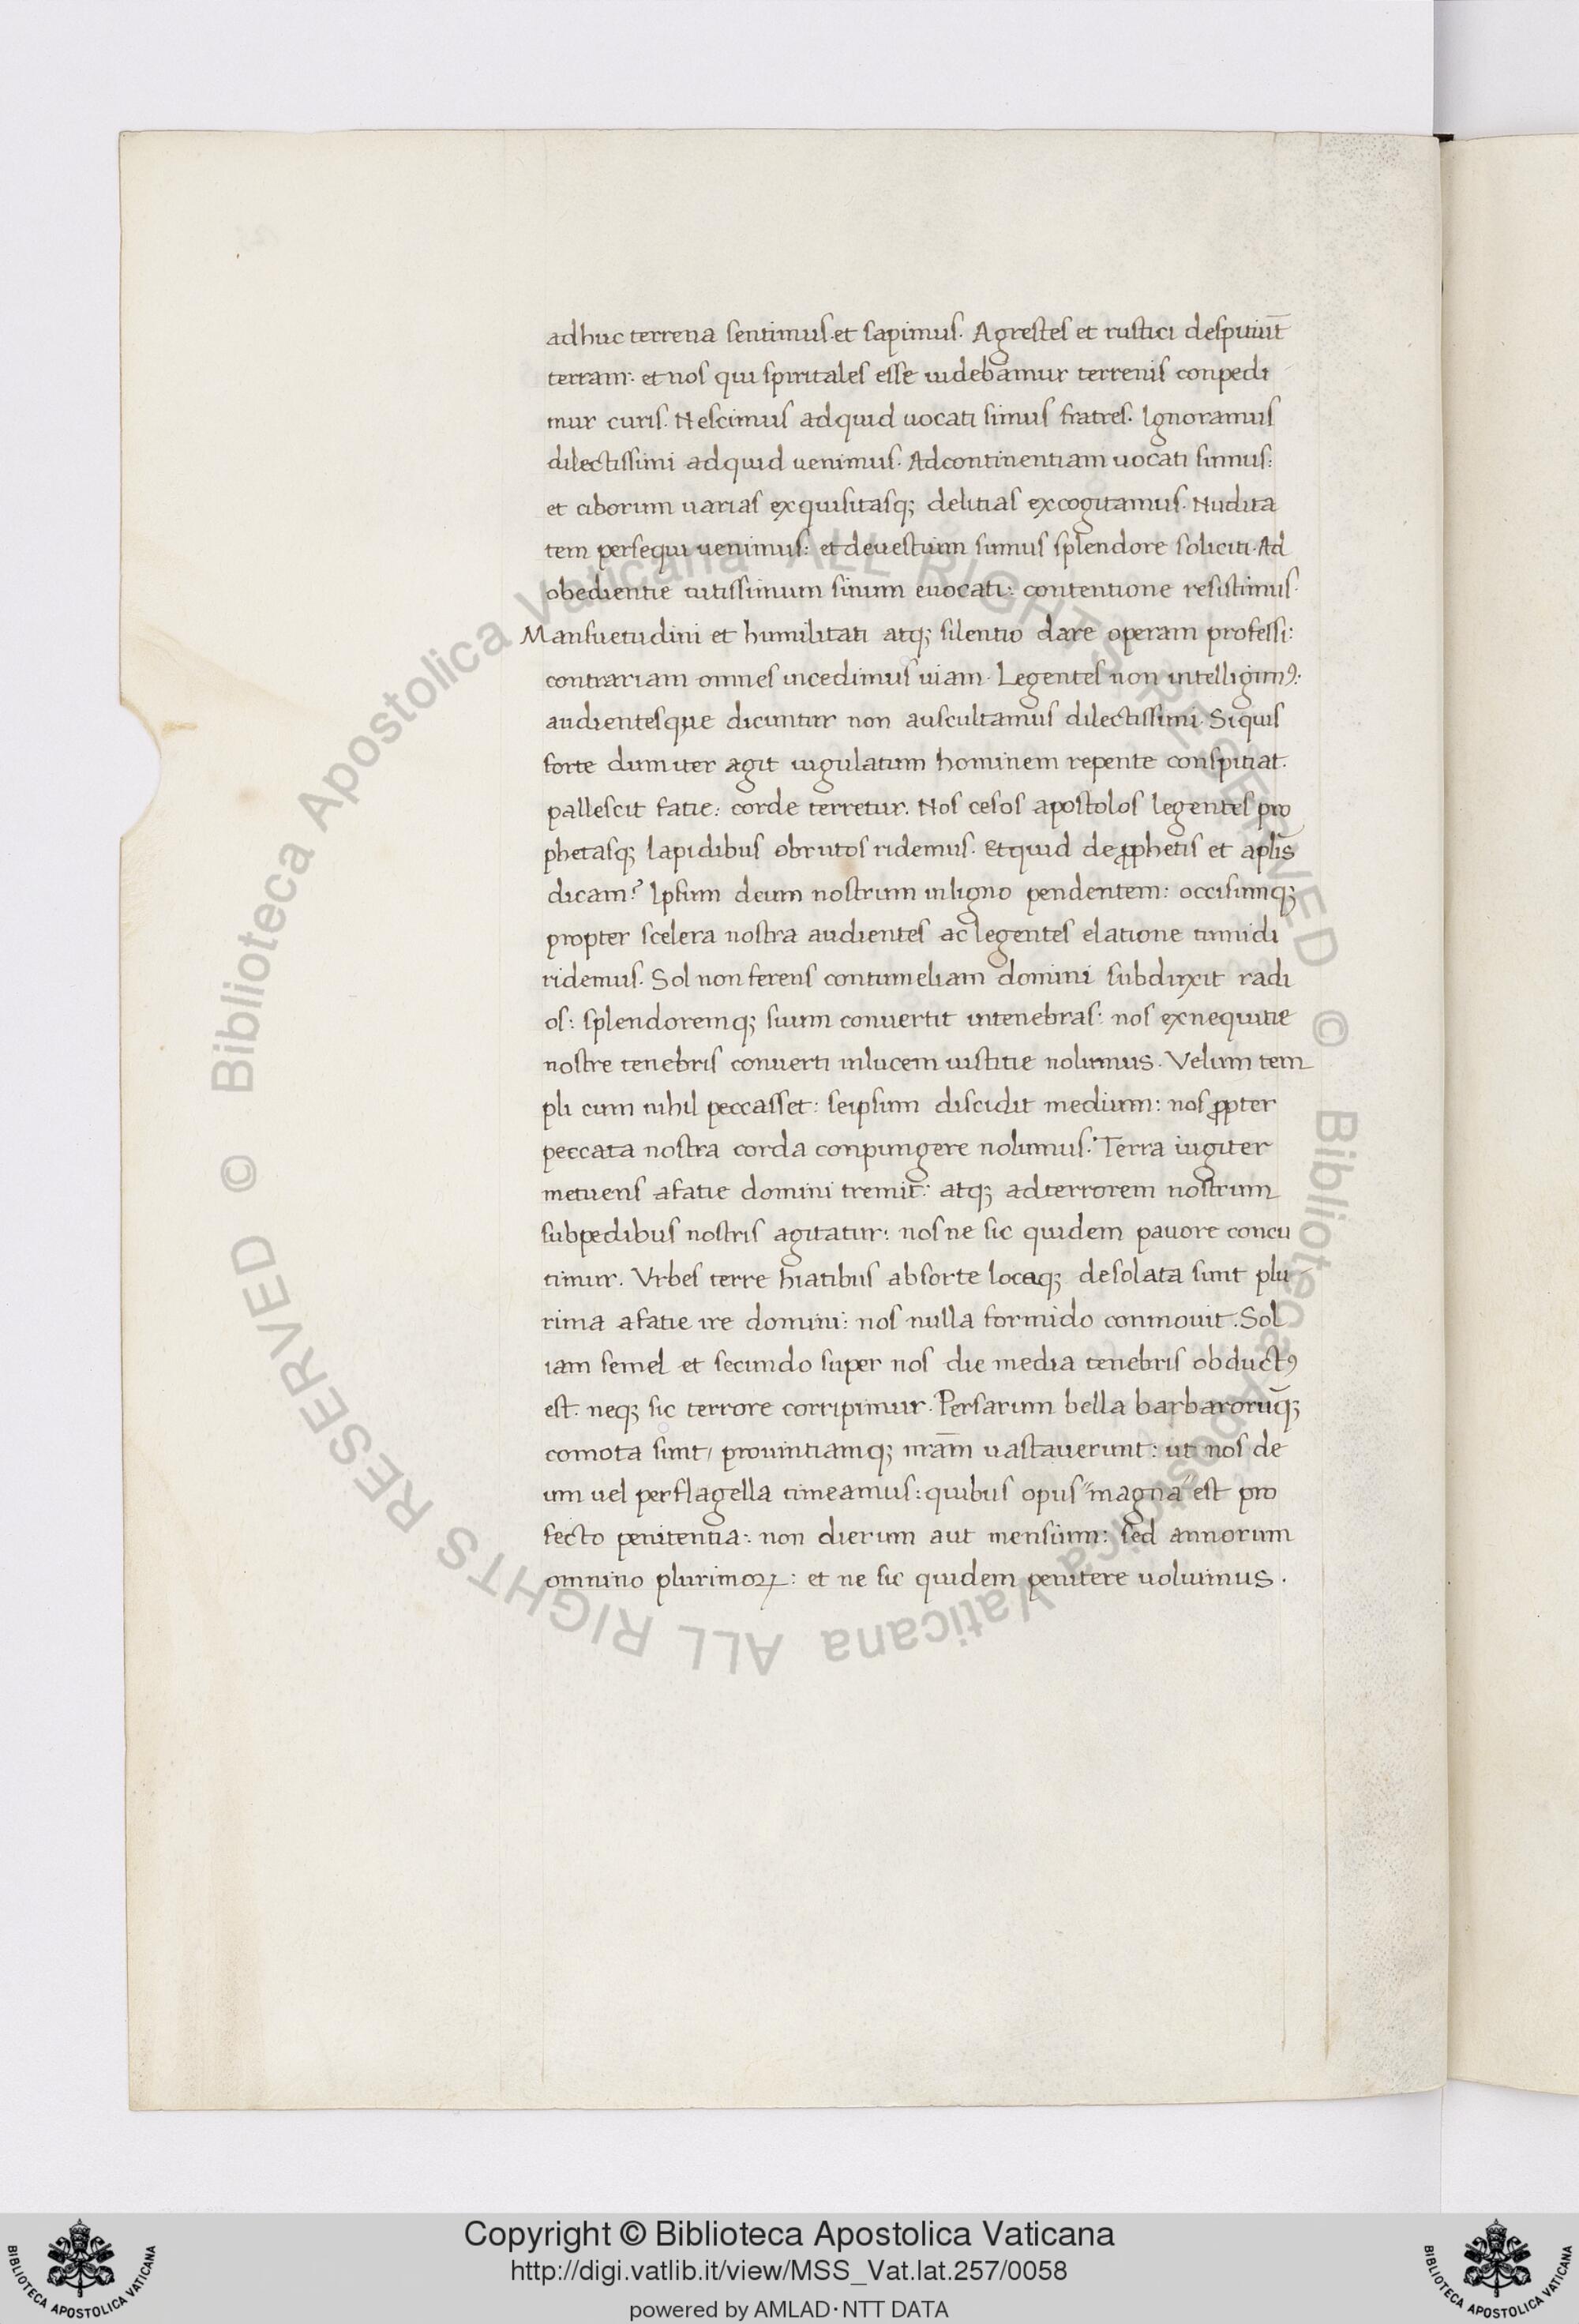 adhuc terrena sentimus. et sapimus. Agrestes et rustici despiciūt
terram: et nos qui spiritales esse uidebamur terrenis conpedi
mur curis. Nescimus adquid uocati simus fratres. Ignoramus
dilectissimi adquid uenimus. Adcontinentiam uocati sumus:
et ciborum uarias exquisitasq; delitias excogitamus. Nudita
tem persequi uenimus: et deuestium sumus splendore soliciti. Ad
obedientie tutissimum sinum euocati: contentione resistimus.
Mansuetudini et humilitati atq; silentio dare operam professi:
contrariam omnes incedimus uiam. Legentes non intelligimꝰ:
audientesque dicuntur non auscultamus dilectissimi. Siquis
forte dumiter agit iugulatum hominem repente conspitiat.
pallescit fatie: corde terretur. Nos cesos apostolos legentes pro
phetasq; lapidibus obrutos ridemus. Etquid de ꝓphetis et aplīs
dicam? Ipsum deum nostrum inligno pendentem: occisumq;
propter scelera nostra audientes ac legentes elatione tumidi
ridemus. Sol non ferens contumeliam domini subduxit radi
os: splendoremq; suum conuertit intenebras: nos exnequitie
nostre tenebris conuerti inlucem iustitie nolumus. Velum tem
pli cum nihil peccasset: seipsum discidit medium: nos ꝓpter
peccata nostra corda conpungere nolumus. Terra iugiter
metuens afatie domini tremit: atq; adterrorem nostrum
subpedibus nostris agitatur: nos ne sic quidem pauore concu
timur. Vrbes terre hiatibus absorte locaq; desolata sunt plu
rima afatie ire domini: nos nulla formido conmouit. Sol
iam semel et secundo super nos die media tenebris obductꝰ
est. neq; sic terrore corripimur. Persarum bella barbarorūq;
comota sunt, prouintiamq; nrām uastauerunt: ut nos de
um uel perflagella timeamus: quibus opus "magna" est pro
fecto penitentia: non dierum aut mensium: sed annorum
omnino plurimoꝝ: et ne sic quidem penitere uoluimus.
© Biblioteca Apostolica Vaticana ALL RIGHTS RESERVED © Biblioteca Apostolica Vaticana ALL RIGHTS RESERVED
Copyright © Biblioteca Apostolica Vaticana
http://digi.vatlib.it/view/MSS_Vat.lat.257/0058
powered by AMLAD·NTT DATA
BIBLIOTECA APOSTOLICA VATICANA
BIBLIOTECA APOSTOLICA VATICANA